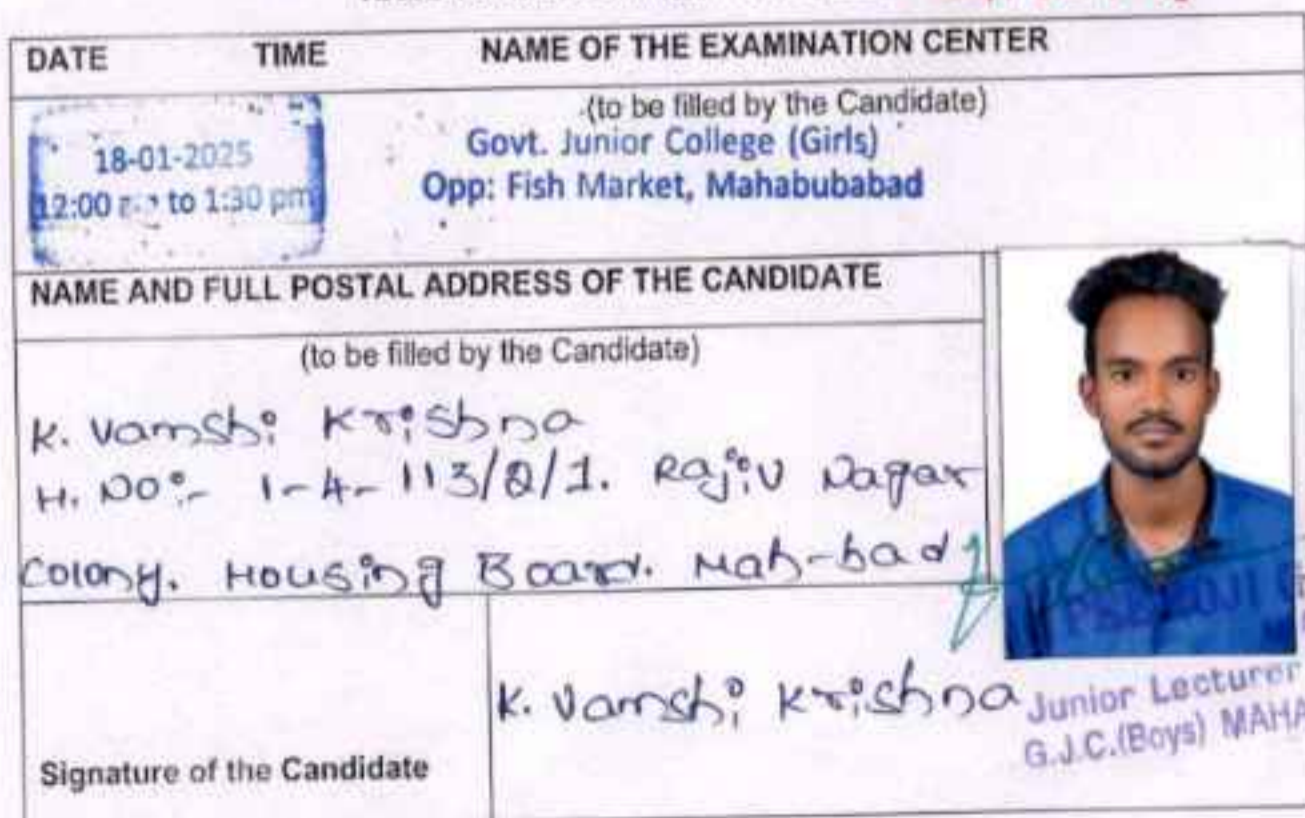 DATE TIME NAME OF THE EXAMINATION CENTER
(to be filled by the Candidate)
18-01-2025
12:00 to 1:30 pm
Govt. Junior College (Girls)
Opp: Fish Market, Mahabubabad
NAME AND FULL POSTAL ADDRESS OF THE CANDIDATE
(to be filled by the Candidate)
K. Vamshi Krishna
H. NO:- 1-4-113/2/1. Rajiv Nagar
Colony. Housing Board. Mah-bad
Signature of the Candidate
K. Vamshi Krishna
Junior Lecturer
G.J.C.(Boys) MAHA